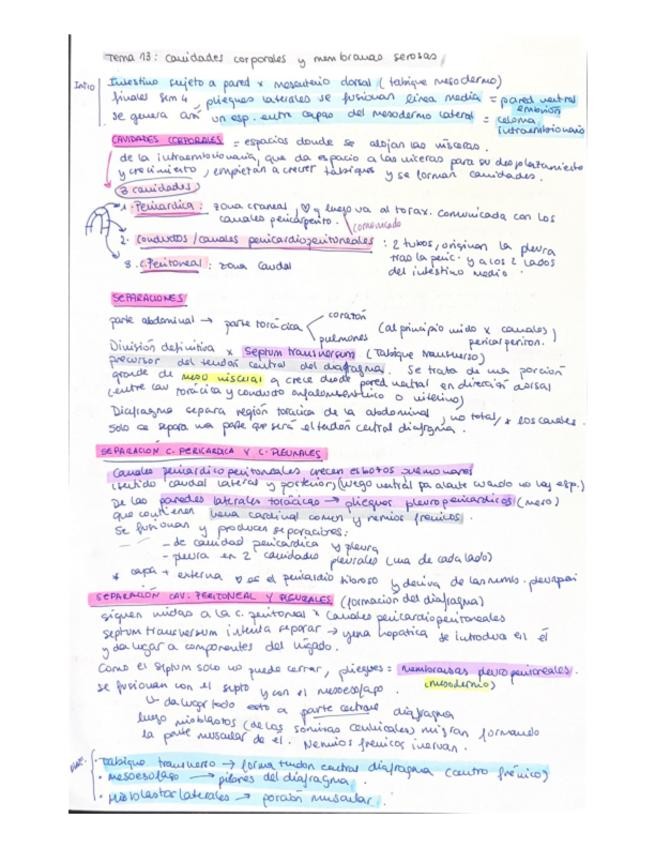 Tema 13: cavidades corporales y membranas serosas
Intro
Intestino sujeto a pared x mesenterio dorsal (tabique mesodermo)
finales sem 4 pliegues laterales se fusionan línea media = pared ventral embrión
se genera así un esp. entre capas del mesodermo lateral = celoma intraembrionario
CAVIDADES CORPORALES = espacios donde se alojan las vísceras.
de la intraembrionaria, que da espacio a las vísceras para su desplazamiento
y crecimiento, empiezan a crecer tabiques y se forman cavidades.
3 cavidades
1. Pericardica: zona craneal, ♡ y luego va al torax. Comunicada con los
canales pericarperito. comunicado
2. Conductos/canales pericardioperitoneales: 2 tubos, originan la pleura
tras la peric. y a los 2 lados
del intestino medio.
3. C. Peritoneal: zona caudal
SEPARACIONES
parte abdominal → parte torácica
corazón
pulmones
(al principio unido x canales)
pericarperiton.
División definitiva x septum transversum (Tabique transverso)
precursor del tendón central del diafragma. Se trata de una porción
grande de meso visceral q crece desde pared ventral en dirección dorsal
(entre cav torácica y conducto onfalomesentérico o vitelino)
Diafragma separa región torácica de la abdominal, no total, x los canales.
Solo se separa una parte que será el tendón central diafragma.
SEPARACION C. PERICARDICA Y C. PLEURALES
Canales pericardico peritoneales crecen esbotos pulmonares
(sentido caudal lateral y posterior, (luego ventral pa alante cuando no hay esp.)
De las paredes laterales torácicas → pliegues pleuropericardicos (meso)
que contienen vena cardinal comun y nervios frenicos.
Se fusionan y producen separaciones:
- de cavidad pericardica y pleura
- pleura en 2 cavidades pleurales (una de cada lado)
* capa + externa ♡ es el pericardio fibroso y deriva de las memb. pleuroperi
SEPARACIÓN CAV. PERITONEAL Y PLEURALES (formación del diafragma)
siguen unidas a la c. peritoneal x canales pericardioperitoneales
septum transversum intenta separar → yema hepatica se introduce en él
y da lugar a componentes del hígado.
Como el septum solo no puede cerrar, pliegues = membranas pleuroperitoneales.
se fusionan con el septo y con el mesoesofago. (mesodermo)
↳ da lugar todo esto a parte central diafragma
luego mioblastos (de las somitas cervicales) migran formando
la parte muscular de el. Nervios frenicos inervan.
• tabique transverso → forma tendon central diafragma (centro frénico)
• mesoesofago → pilares del diafragma.
• mioblastos laterales → porción muscular.